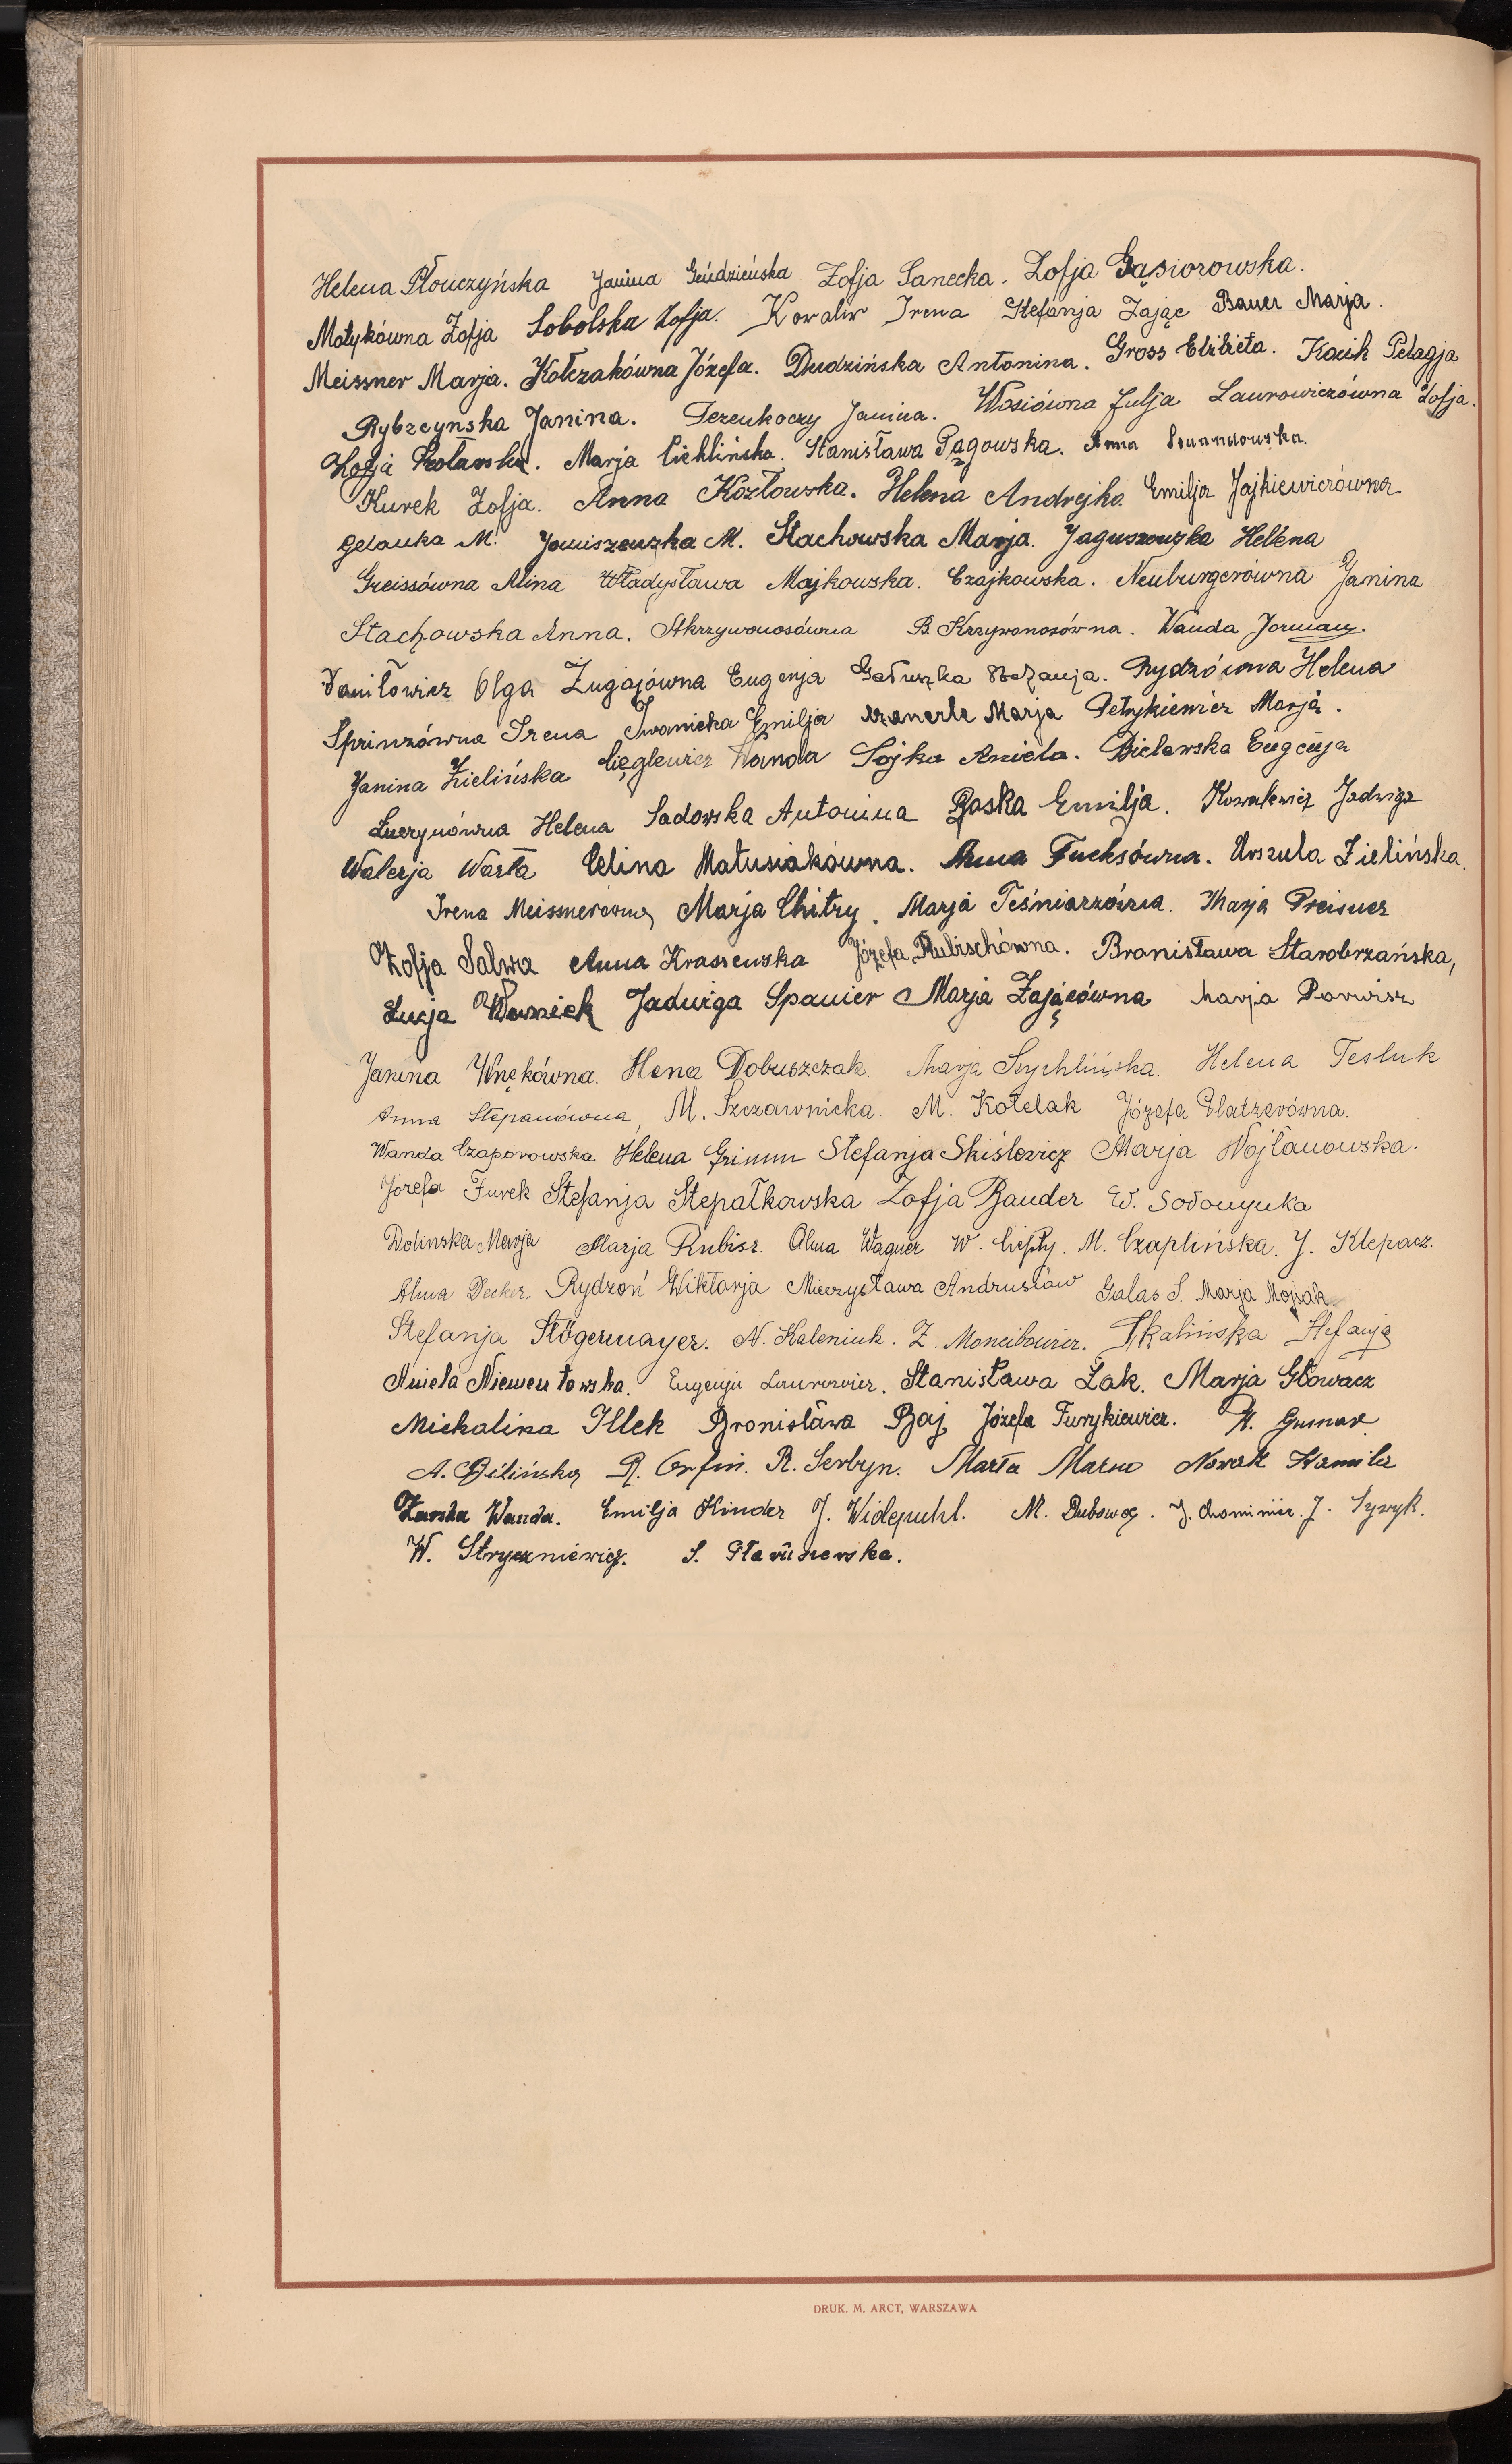 Helena Płonczyńska Janina Gendzieńska Zofja Sanecka. Zofja Gąsiorowska.
Motykówna Zofja Sobolska Zofja. Kowaliw Irena Stefanja Zając Bauer Marja.
Meissner Marja. Kołczakówna Józefa. Dudzińska Antonina. Gross Elżbieta. Kocik Pelagja
Rybzcynska Janina. Janina. Wosiówna Julja Laurowiczówna Zofja.
Zofja Marja Cichlińska. Stanisława Pągowska. Anna
Kurek Zofja. Anna Kozłowska. Helena Andrejko. Emilja Jajkiewiczówna.
M. Janiszewska M. Stachowska Marja. Jaguszewska Helena
Greissówna Alina Władysława Majkowska. Czajkowska. Neuburgerówna Janina
Stachowska Anna. B. Krzywonosówna. Wanda Jorman.
Daniłowicz Olga Żugajówna Eugenja Gałuszka Stefanja. Rydzówna Helena
Sprinzówna Irena Iwanicka Emilja Marja Petrykiewicz Marja.
Janina Zielińska Cięglewicz Wanda Sojka Aniela. Bielawska Eugenja
Łuczynówna Helena Sadowska Antonina Baska Emilja. Kowalewicz Jadwiga
Walerja Warta Celina Matusiakówna. Anna Fuchsówna. Urszula Zielińska.
Irena Meissnerówna, Marja Chitry. Marja Teśniarzówna. Marja Preisner
Zofja Salwa Anna Krassowska Józefa Rubischówna. Bronisława Starobrzańska,
Łucja Woźniek Jadwiga Spanier Marja Zającówna Marja Parwisz
Janina Wnękówna. Hena Dobuszczak. Marja Szychlińska. Helena Tesluk
Anna Stepanówna, M. Szczawnicka. M. Kotelak Józefa Platzerówna.
Wanda Czaporowska Helena Grimm Stefanja Skiślewicz Marja Wojtanowska.
Józefa Furek Stefanja Stepałkowska Zofja Bauder W. Sołonynka
Dolinska Marja Marja Rubisz. Alma Wagner W. Ciepły. M. Czaplińska. J. Klepacz.
Alma Decker. Rydzoń Wiktorja Mieczysława Andrusław Galas S. Marja Mojsak
Stefanja Stögermayer. N. Kaleniuk. Z. Moncibowicz. Skalińska Stefanja
Aniela Niementowska. Eugenja Laurowicz. Stanisława Żak. Marja Głowacz
Michalina Illek Bronisława Baj, Józefa Furykiewicz. Gusnar
A. Bilińska R. Orfin. R. Serbyn. Marta Marno Nowak Kamila
Wanda. Emilja Kinder J. Widepuhl. M. Dubowa. J. Chominicz. J. Syzyk.
W. Stryczniewicz. S.
DRUK. M. ARCT, WARSZAWA